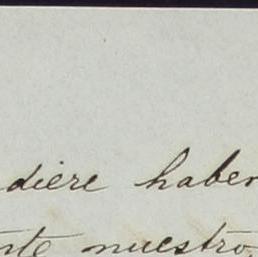 diere haber
nte nuestro,